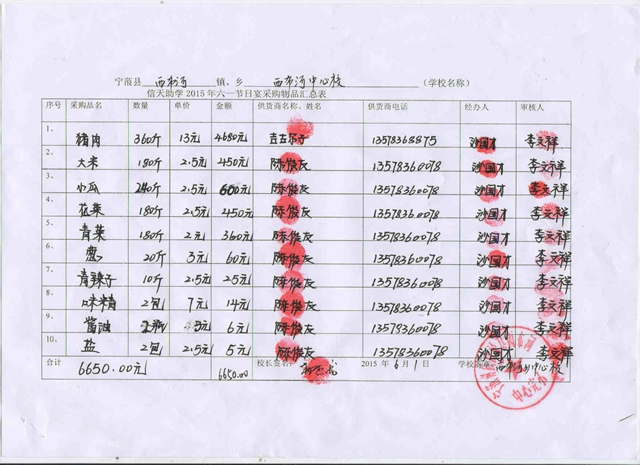 宁蒗县 西布河 镇、乡 西布河中心校 （学校名称）
信天助学2015年六一节日宴采购物品汇总表
序号 采购品名 数量 单价 金额 供货商名称、姓名 供货商电话 经办人 审核人
1、 猪肉 360斤 13元 4680元 13578368875 沙国才 李文祥
2、 大米 180斤 2.5元 450元 陈俊友 13578360078 沙国才 李文祥
3、 小瓜 240斤 2.5元 600元 陈俊友 13578360078 沙国才 李文祥
4、 花菜 180斤 2.5元 450元 陈俊友 13578360078 沙国才 李文祥
5、 青菜 180斤 2元 360元 陈俊友 13578360078 沙国才 李文祥
6、 葱 20斤 3元 60元 陈俊友 13578360078 沙国才 李文祥
7、 青辣子 10斤 2.5元 25元 陈俊友 13578360078 沙国才 李文祥
8、 味精 2包 7元 14元 陈俊友 13578360078 沙国才 李文祥
9、 酱油 2瓶 3元 6元 陈俊友 13578360078 沙国才 李文祥
10、 盐 2包 2.5元 5元 陈俊友 13578360078 沙国才 李文祥
合计 6650.00元 6650.00 校长签名： 2015年6月1日 西布河中心校